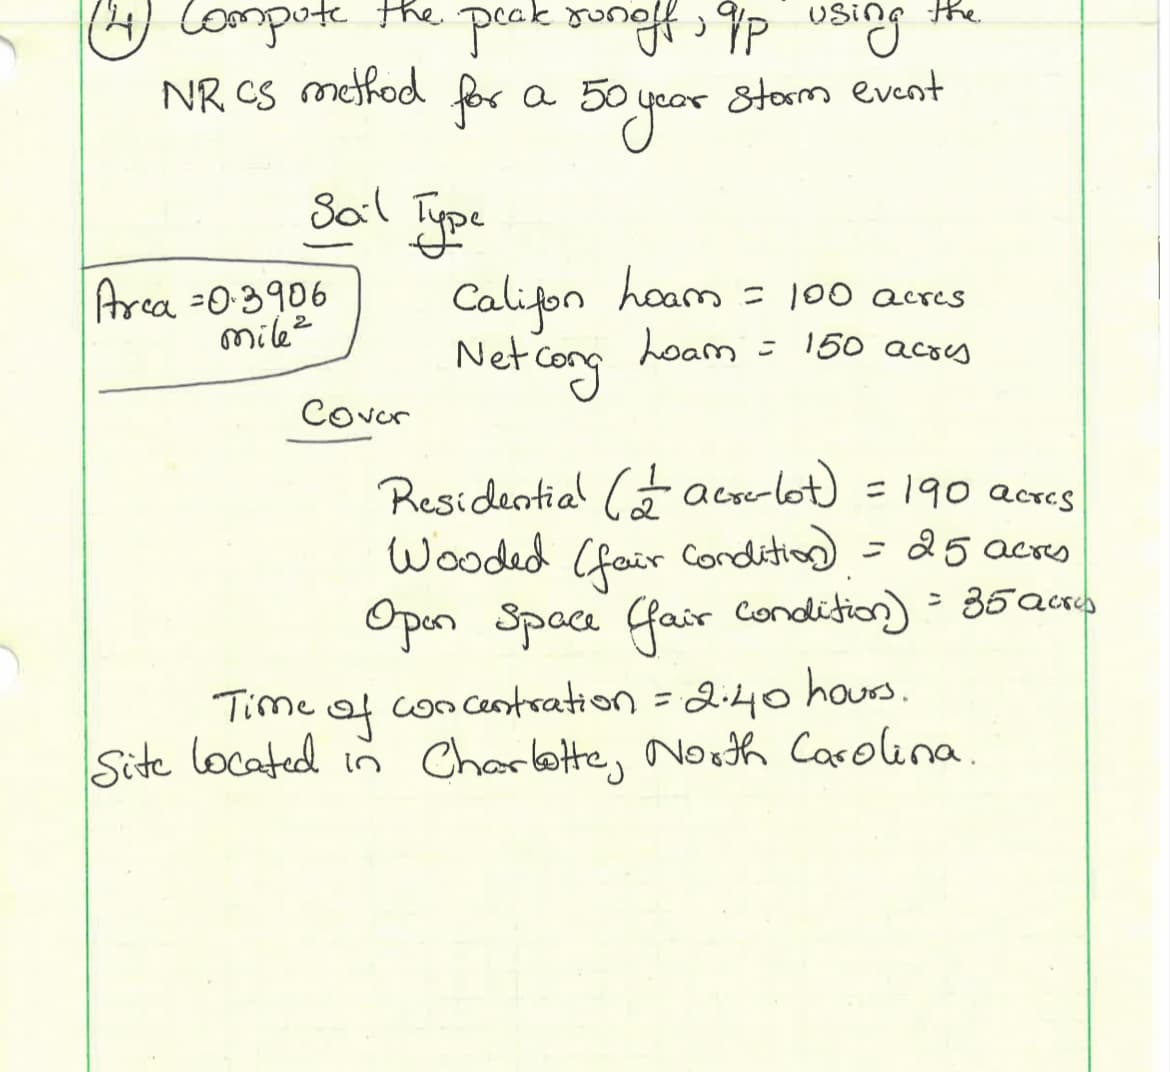 (4) Compute the peak runoff, qp using the
NRCS method for a 50 year storm event
Soil Type
Area = 0.3906
mile²
Califon Loam = 100 acres
Netcong Loam = 150 acres
Cover
Residential (1/2 acre-lot) = 190 acres
Wooded (fair condition) = 25 acres
Open Space (fair condition) = 35 acres
Time of concentration = 2.40 hours.
Site located in Charlotte, North Carolina.